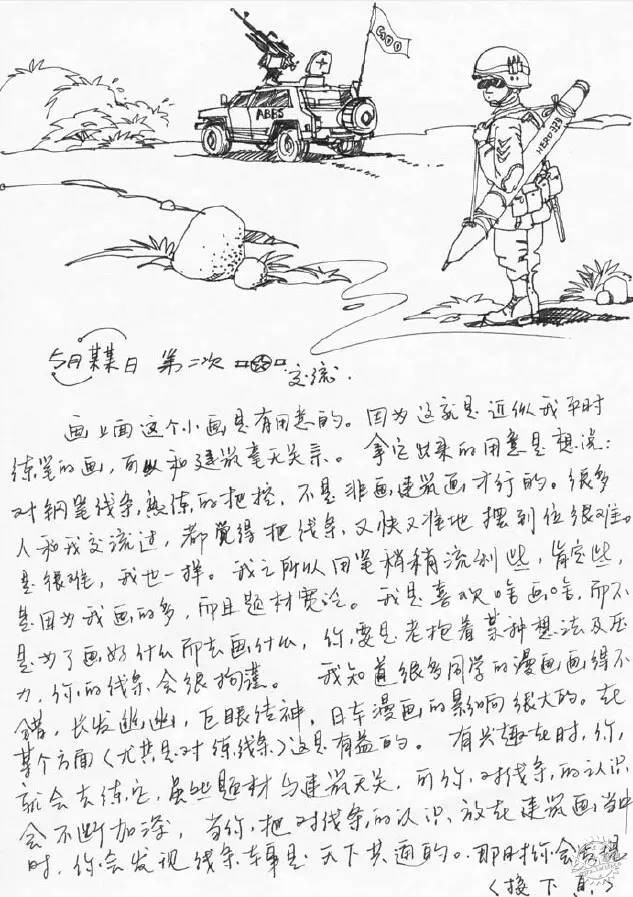 GOO
ABBS
HERO-329
5月某某日 第二次 交流.
画上面这个小画是有用意的。因为这就是近似我平时
练笔的画,可以和建筑毫无关系。拿它出来的用意是想说:
对钢笔线条,熟练的把控,不是非画建筑画才行的。很多
人和我交流过,都觉得把线条,又快又准地摆到位很难。
是很难,我也一样。我之所以用笔稍稍流利些,肯定些,
是因为我画的多,而且题材宽泛。我是喜欢啥画啥,而不
是为了画好什么而去画什么,你要是老抱着某种想法及压
力,你的线条会很拘谨。我知道很多同学的漫画画得不
错,长发幽幽,巨眼结神,日本漫画的影响很大的。在
某个方面(尤其是对练线条)这是有益的。有兴趣在时,你,
就会去练它,虽然题材与建筑无关,可你,对线条,的认识
会不断加深,当你,把对线条的认识,放在建筑画,当中
时,你会发现线条本事是天下共通的。那时你会发现
(接下页)